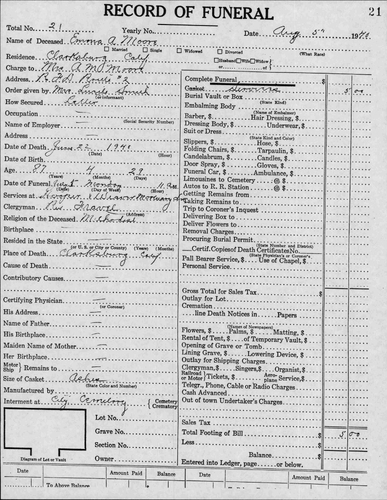 RECORD OF FUNERAL
21
Total No. 21 Yearly No. Date Aug 5th 1940
Name of Deceased Emma A. Moore
Married Single Widowed Divorced (What Race)
Residence Clarksburg Calif Husband Wife Widow of
Charge to Mrs. A. M. Moore
Address
Order given by Mrs. Smith
(or Informant)
How Secured Letter
Occupation
(Social Security Number)
Name of Employer
Address
Date of Death June 22 1940
Date of Birth
Age
(Years) (Months) (Days)
Date of Funeral Monday
Services at
Clergyman Rev.
Religion of the Deceased Methodist
Birthplace
Resided in the State
(or U. S., or City or County) (Years) (Months)
Place of Death Clarksburg Calif
Cause of Death
Contributory Causes
Certifying Physician
(or Coroner)
His Address
Name of Father
His Birthplace
Maiden Name of Mother
Her Birthplace
Motor Ship Remains to
Size of Casket Ashes
(State Color and Number)
Manufactured by
Interment at City Cemetery Cemetery Crematory
Lot No.
Grave No.
Section No.
Owner
Diagram of Lot or Vault
Complete Funeral $
Casket Services 5.00
Burial Vault or Box
(State Kind)
Embalming Body
(Name of Embalmer)
Barber, $ Hair Dressing, $
Dressing Body, $ Underwear, $
Suit or Dress
(State Kind and Color)
Slippers, $ Hose, $
Folding Chairs, $ Tarpaulin, $
Candelabrum, $ Candles, $
Door Spray, $ Gloves, $
Funeral Car, $ Ambulance, $
Limousines to Cemetery @ $
Autos to R. R. Station @ $
Getting Remains from
Taking Remains to
Trip to Coroner's Inquest
Delivering Box to
Deliver Flowers to
Removal Charges
Procuring Burial Permit
(State Number and District)
Certif. Copies of Death Certificates No.
(State Physician's or Coroner's)
Pall Bearer Service, $ Use of Chapel, $
Personal Service
Gross Total for Sales Tax $
Outlay for Lot
Cremation
line Death Notices in Papers
(Names of Newspapers)
Flowers, $ Palms, $ Matting, $
Rental of Tent, $ of Temporary Vault, $
Opening of Grave or Tomb
Lining Grave, $ Lowering Device, $
Outlay for Shipping Charges
Clergyman, $ Singers, $ Organist, $
Railroad or Motor Tickets, $ Aeroplane Service, $
Telegr., Phone, Cable or Radio Charges
Cash Advanced
Out of town Undertaker's Charges
Sales Tax
Total Footing of Bill $ 5.00
Less
Balance $
Entered into Ledger, page or below.
Date Amount Paid Balance Date Amount Paid Balance
To Above Balance